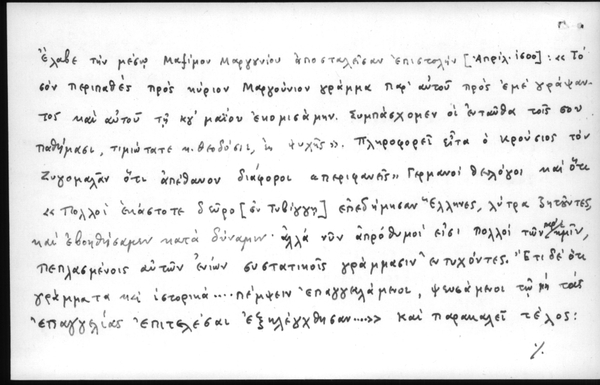 Ἔλαβε τὴν μέσῳ Μαξίμου Μαργουνίου ἀποσταλεῖσαν ἐπιστολὴν [Ἀπρίλ. 1500]: «Τὸ
σὸν περιπαθὲς πρὸς κύριον Μαργούνιον γράμμα παρ' αὐτοῦ πρὸς ἐμὲ γράψαν-
τος καὶ αὐτοῦ τῇ κγ' μαΐου ἐκομισάμην. Συμπάσχομεν οἱ ἐνταῦθα τοῖς σου
παθήμασι, τιμιώτατε κ. Θεοδόσιε, ἐκ ψυχῆς». Πληροφορεῖ εἶτα ὁ Κρούσιος τὸν
Ζυγομαλᾶν ὅτι ἀπέθανον διάφοροι "περιφανεῖς" Γερμανοὶ θεολόγοι καὶ ὅτι
«Πολλοὶ ἑκάστοτε δεῦρο [ἐν Τυβίγγῃ] ἐπεδήμησαν Ἕλληνες, λύτρα ζητοῦντες,
καὶ ἐβοηθήσαμεν κατὰ δύναμιν· ἀλλὰ νῦν ἀπρόθυμοί εἰσι πολλοὶ τῶν παρ' ἡμῖν,
πεπλασμένοις αὐτῶν ἐνίων συστατικοῖς γράμμασιν ἐντυχόντες. Ἔτι δὲ ὅτι
γράμματα καὶ ἱστορικά.... πέμψειν ἐπαγγειλάμενοι, ψευσάμενοι τῷ μὴ τὰς
ἐπαγγελίας ἐπιτελέσαι ἐξηλέγχθησαν....» καὶ παρακαλεῖ τέλος:
./.